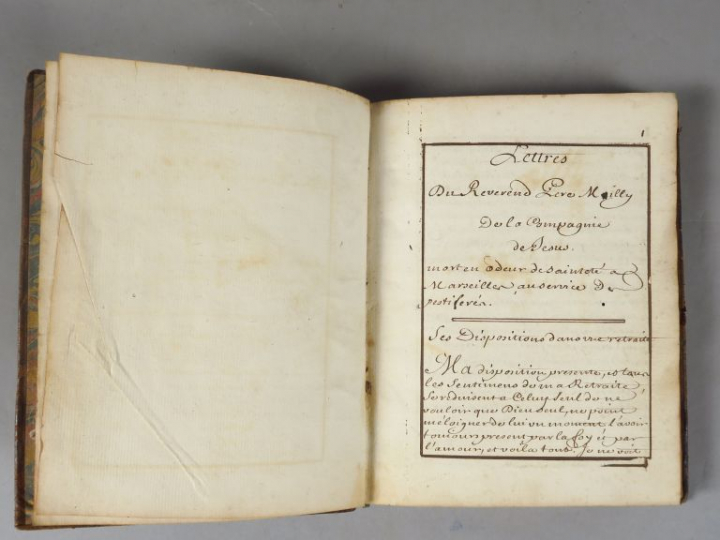 1
Lettres
Du Reverend Pere Mailly
De la Compagnie
de Jesus.
mort en odeur de sainteté a
Marseilles, au service De
pestiferés.
Ses Dispositions dans une retraite
Ma disposition presente, et tous
les Sentimens de ma Retraite,
Se reduisent a Celuy Seul de ne
vouloir que Dieu Seul, ne point
m'eloigner de lui un moment l'avoir
toujours present par la foy et par
l'amour, et voila tout. Je ne voit